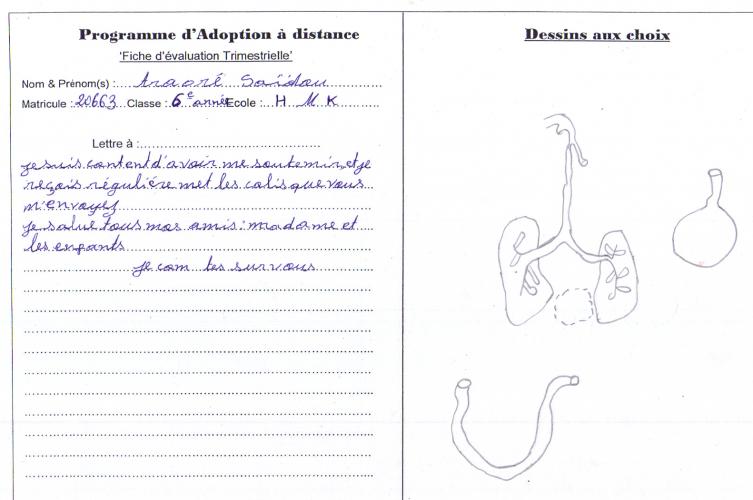 Programme d'Adoption à distance
'Fiche d'évaluation Trimestrielle'
Nom & Prénom(s) :.... traoré Saïdou
Matricule : 20663 Classe : 6e année Ecole : H M K
Lettre à :
je suis contend d'avoir me soutemir et je
reçois réguliére met les colis que vous
m'envoyez
je salue tous mos amis : madame et
les enfants
je com tes sur vous
Dessins aux choix